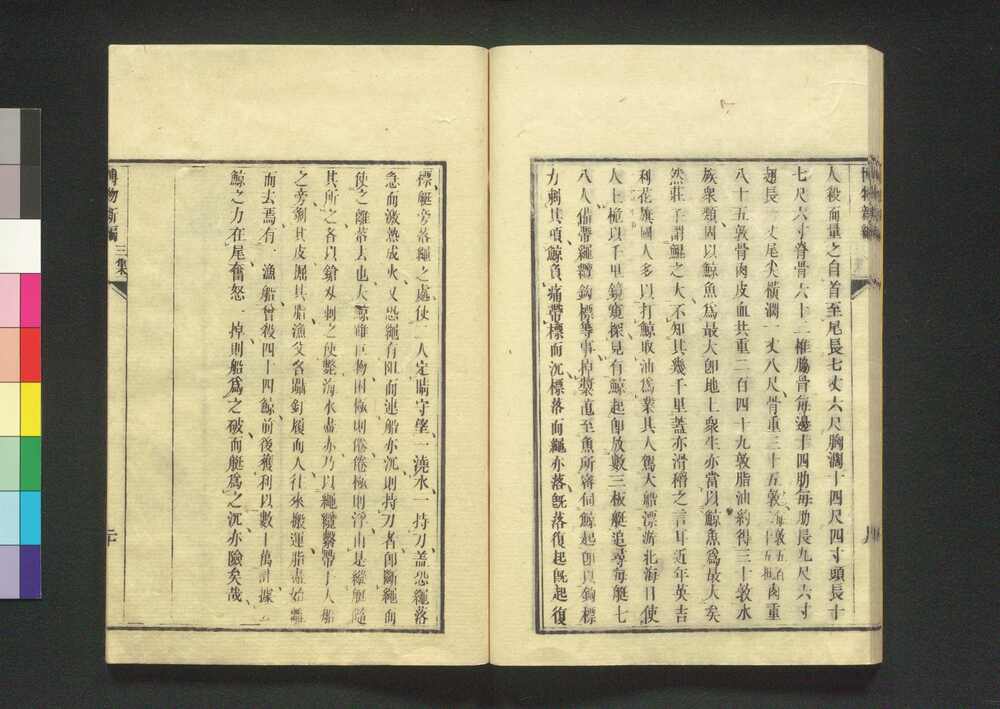 人殺而量之自首至尾長七丈六尺胸濶十四尺四寸頭長十
七尺六寸脊骨六十二椎脇骨每邊十四肋每肋長九尺六寸
翅長一丈尾尖橫濶一丈八尺骨重三十五敦每敦五百肉重
八十五敦骨肉皮血共重二百四十九敦脂油約得三十敦水
族衆類因以鯨魚爲最大卽地上衆生亦當以鯨魚爲最大矣
然莊子謂鯤之大不知其幾千里蓋亦滑稽之言耳近年英吉
利花旗國人多以打鯨取油爲業其人駕大船漂游北海日使
人上檣以千里鏡窺探見有鯨起卽放數三板艇追尋每艇七
八人備帶繩鎗鈎標等事掉槳直至魚所審伺鯨起卽以鈎標
力刺其項鯨負痛帶標而沉標落而繩亦落旣落復起旣起復
標艇旁落繩之處使一人定睛守望一澆水一持刀蓋恐繩落
急而激熱成火又恐繩有阻而連船亦沉則持刀者卽斷繩而
使之離落去也夫鯨雖巨物困極則倦倦極則浮由是繼艇隨
其所之各以鎗刄刺之使斃海水盡赤乃以繩纜繫帶于大船
之旁劀其皮掘其脂漁父各躡釘履而人往來搬運脂盡始離
而去焉有一漁船曾殺四十四鯨前後獲利以數十萬計據云
鯨之力在尾奮怒一掉則船爲之破而艇爲之沉亦險矣哉
博物新編 三集
二十